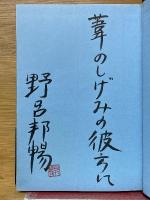 葦のしげみの彼方に
野呂邦暢